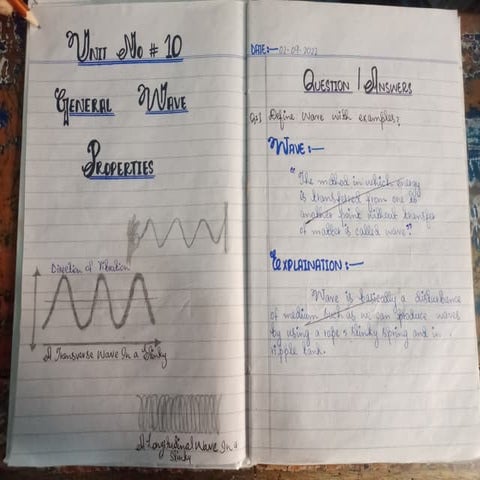 UNIT NO # 10
GENERAL WAVE
PROPERTIES
Direction of Vibration
A Transverse Wave In a Slinky
A Longitudinal Wave In a
Slinky
DATE:— 02-09-2022
QUESTION / ANSWERS
Q:1 Define Wave with examples?
WAVE:—
"The method in which energy
is transferred from one to
another point without transfer
of matter is called wave."
EXPLAINATION:—
Wave is basically a disturbance
of medium such as we can produce waves
by using a rope, slinky spring and in
ripple tank.